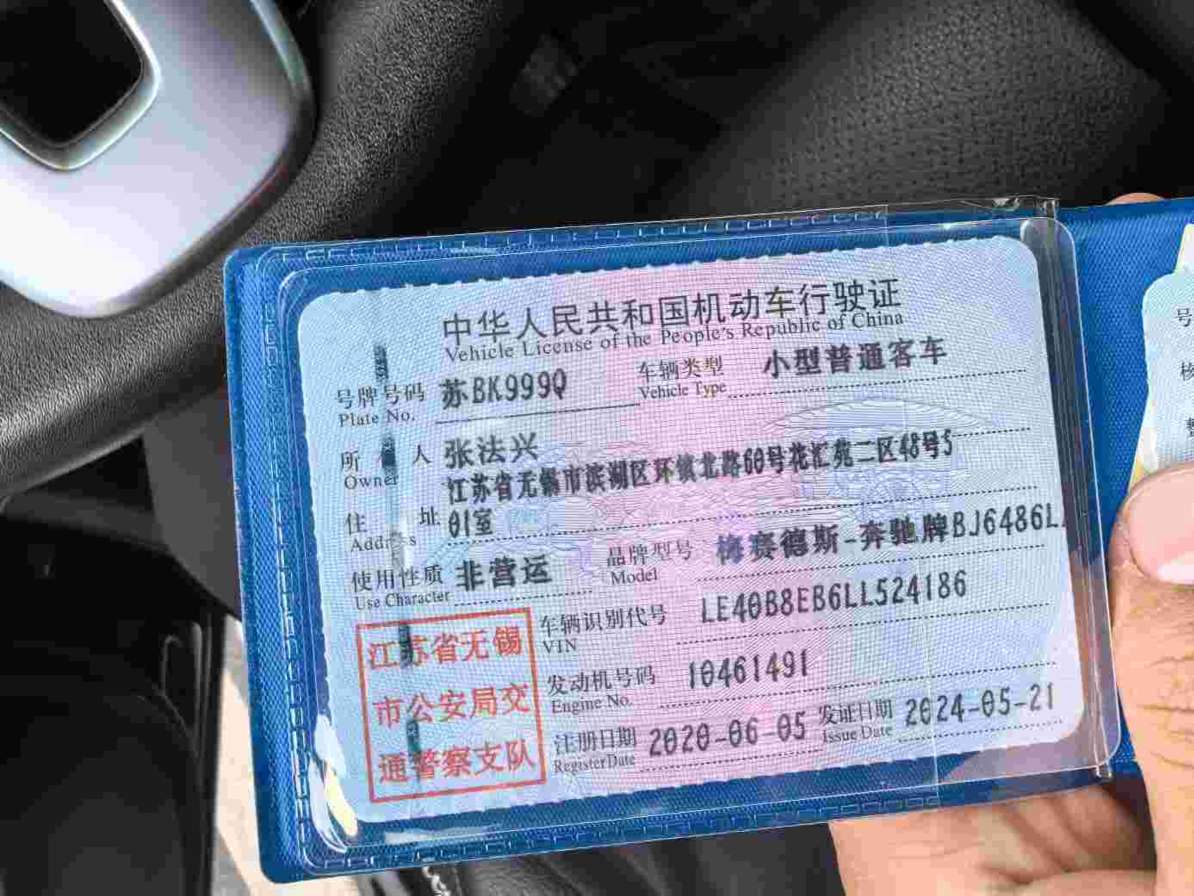 中华人民共和国机动车行驶证
Vehicle License of the People's Republic of China
号牌号码 苏BK999Q 车辆类型 小型普通客车
Plate No. Vehicle Type
所 人 张法兴
Owner
江苏省无锡市滨湖区环镇北路60号花汇苑二区48号5
住 址 01室
Address
使用性质 非营运 品牌型号 梅赛德斯-奔驰牌BJ6486L
Use Character Model
江苏省无锡
市公安局交
通警察支队
车辆识别代号 LE40B8EB6LL524186
VIN
发动机号码 10461491
Engine No.
注册日期 2020-06-05 发证日期 2024-05-21
Register Date Issue Date
号
核
整